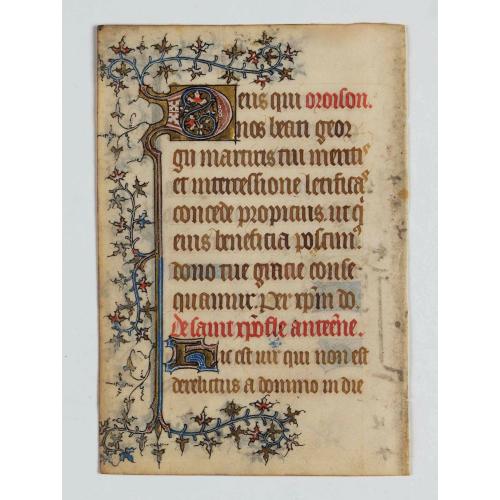 Deus qui oroison.
nos beati geor
gii martiris tui meritis
et intercessione letificas
concede propicius. ut q̇
eius beneficia poscim⁹
dono tue gracie conse-
quamur. Per xp̄m do.
de saint xp̄ofle anteñe.
Hic est uir qui non est
derelictus a domino in die